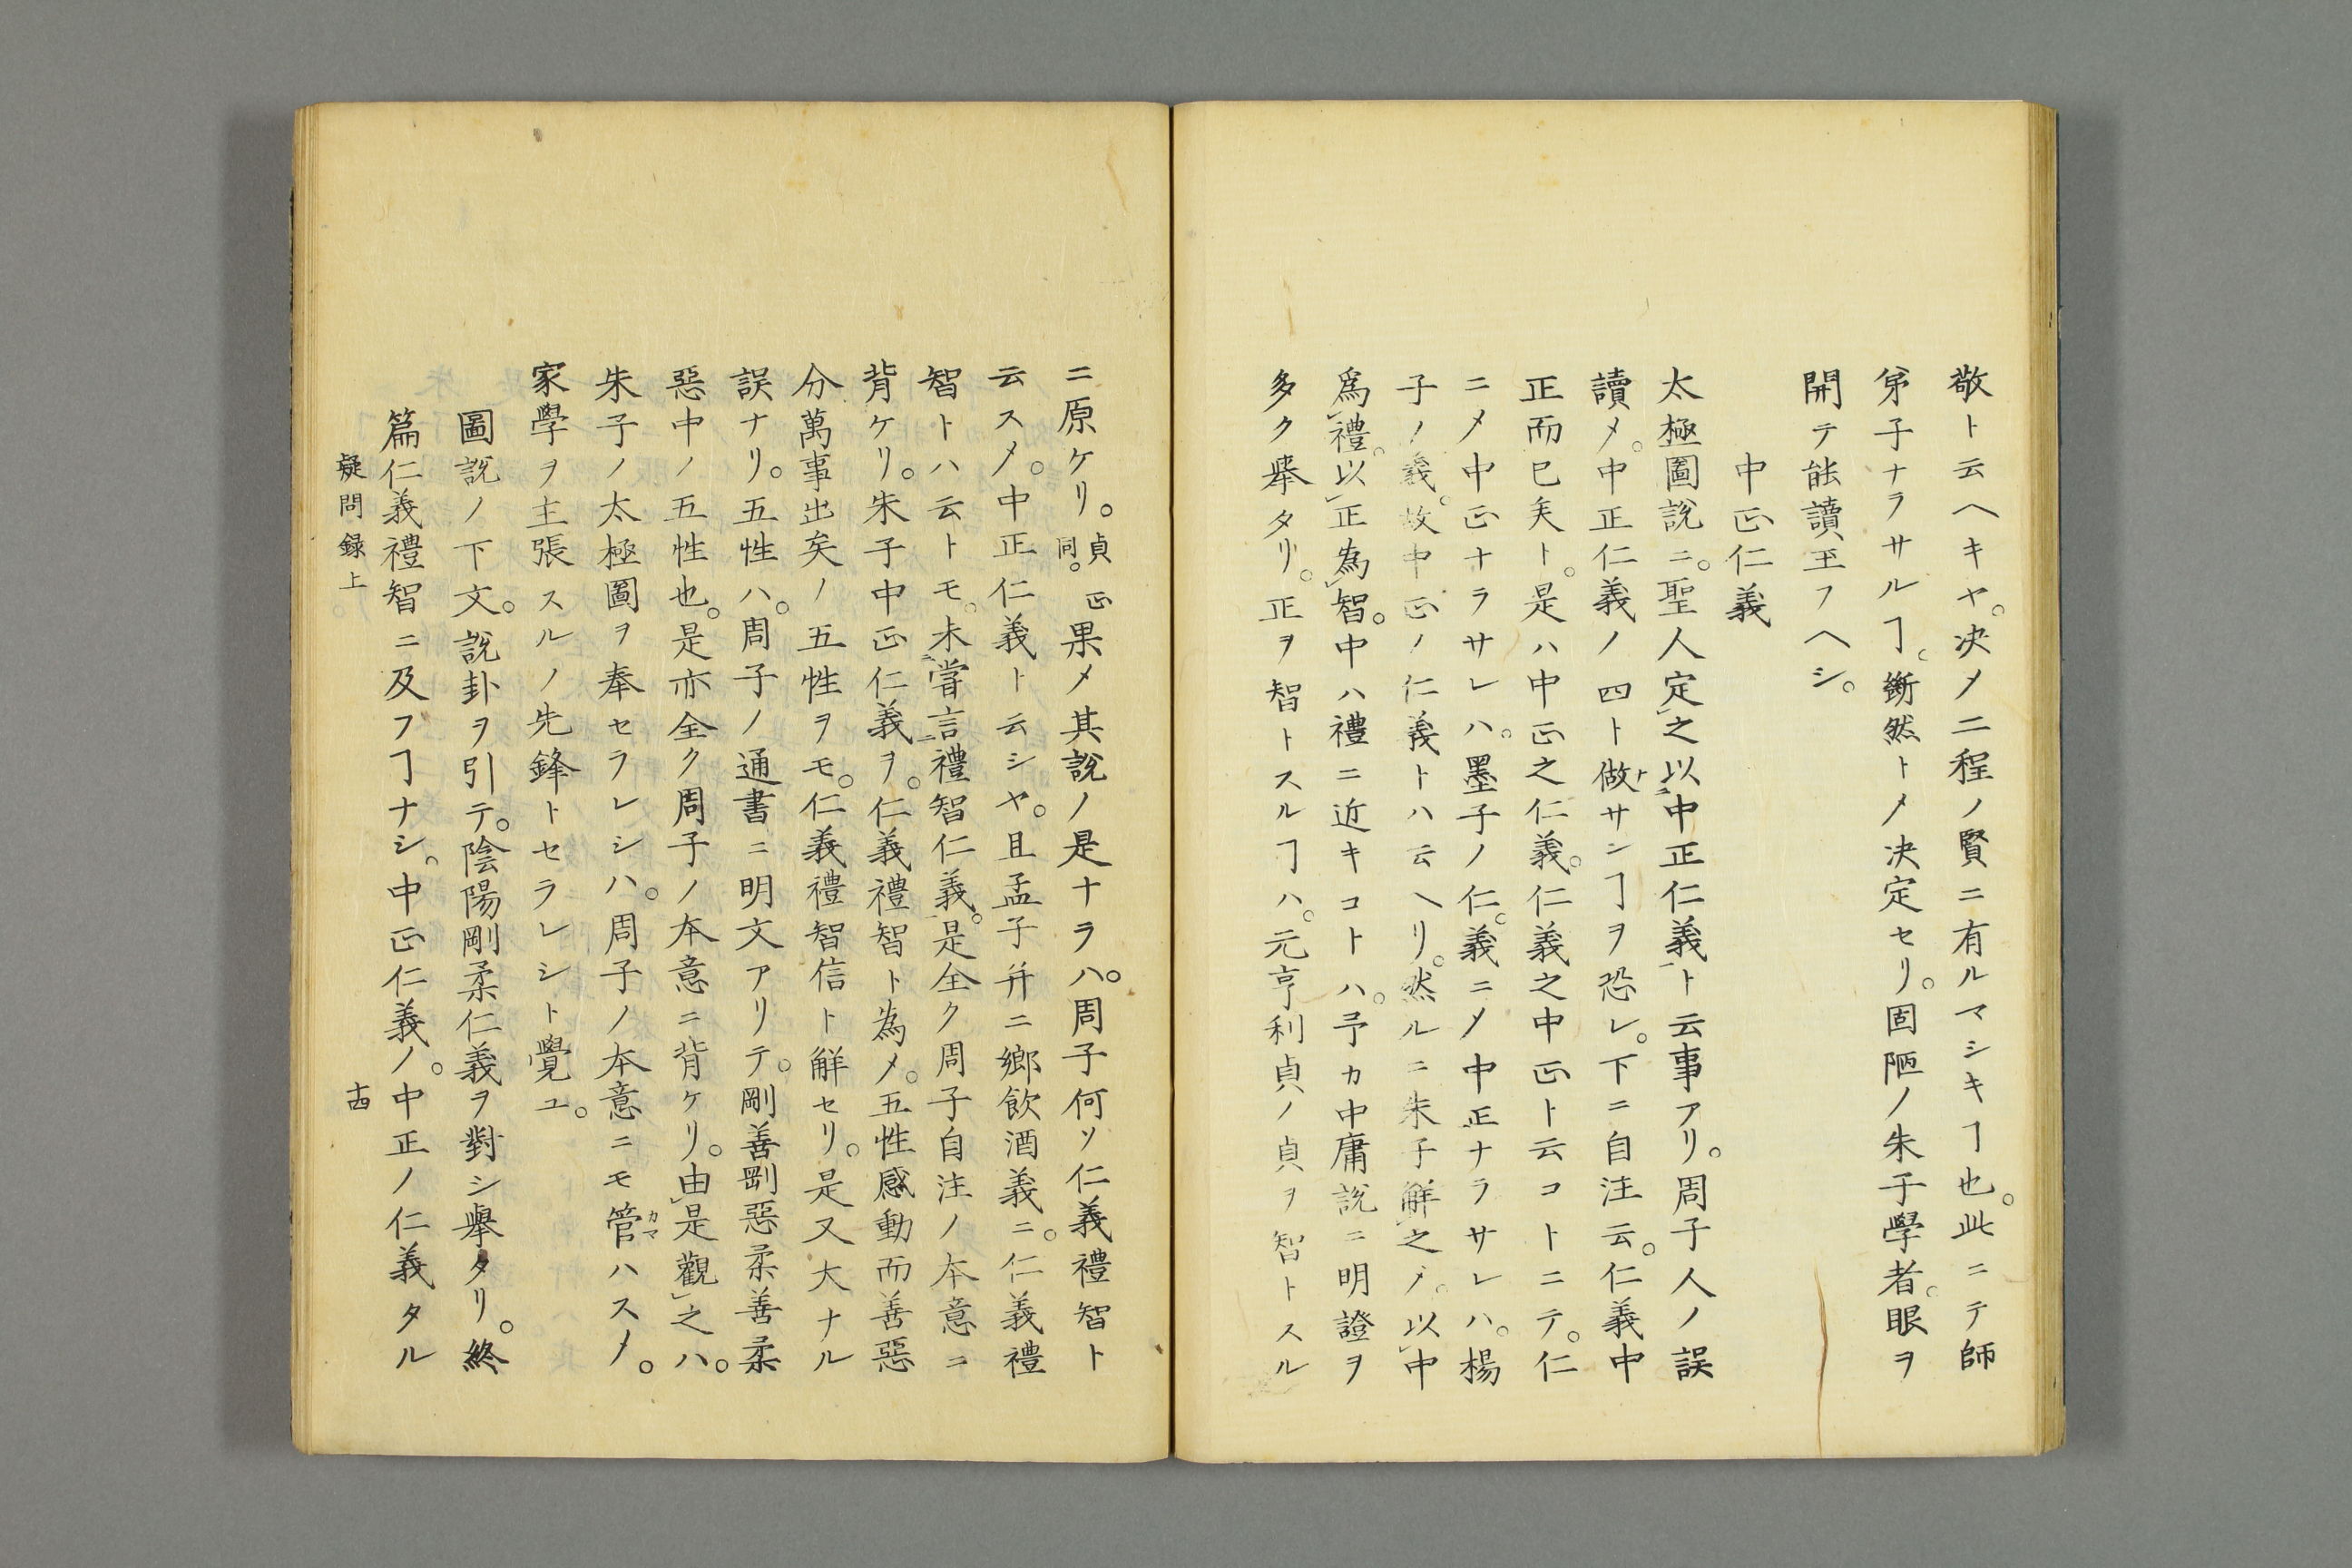 敬ト云ヘキヤ。決〆二程ノ賢ニ有ルマシキヿ也。此ニテ師
弟子ナラサルヿ。斷然ト〆決定セリ。固陋ノ朱子學者。眼ヲ
開テ能讀玉フヘシ。
中正仁義
太極圖說ニ。聖人定之以中正仁義ト云事アリ。周子人ノ誤
讀〆。中正仁義ノ四ト做サンヿヲ恐レ。下ニ自注云。仁義中
正而已矣ト。是ハ中正之仁義。仁義之中正ト云コトニテ。仁
ニ〆中正ナラサレハ。墨子ノ仁。義ニ〆中正ナラサレハ。楊
子ノ義。故中正ノ仁義トハ云ヘリ。然ルニ朱子解之〆。以中
爲禮。以正為智。中ハ禮ニ近キコトハ。予カ中庸說ニ明證ヲ
多ク舉タリ。正ヲ智トスルヿハ。元亨利貞ノ貞ヲ智トスル
ニ原ケリ。貞正同。果〆其說ノ是ナラハ。周子何ソ仁義禮智ト
云ス〆。中正仁義ト云シヤ。且孟子并ニ鄉飲酒義ニ。仁義禮
智トハ云トモ。未嘗言禮智仁義。是全ク周子自注ノ本意ニ
背ケリ。朱子中正仁義ヲ。仁義禮智ト為〆。五性感動而善惡
分萬事出矣ノ五性ヲモ。仁義禮智信ト解セリ。是又大ナル
誤ナリ。五性ハ。周子ノ通書ニ明文アリテ。剛善剛惡柔善柔
惡中ノ五性也。是亦全ク周子ノ本意ニ背ケリ。由是觀之ハ。
朱子ノ太極圖ヲ奉セラレシハ。周子ノ本意ニモ管カマハス〆。
家學ヲ主張スルノ先鋒トセラレシト覺ユ。
圖說ノ下文。說卦ヲ引テ。陰陽剛柔仁義ヲ對シ舉タリ。終
篇仁義禮智ニ及フヿナシ。中正仁義ノ。中正ノ仁義タル
疑問録上。 十四